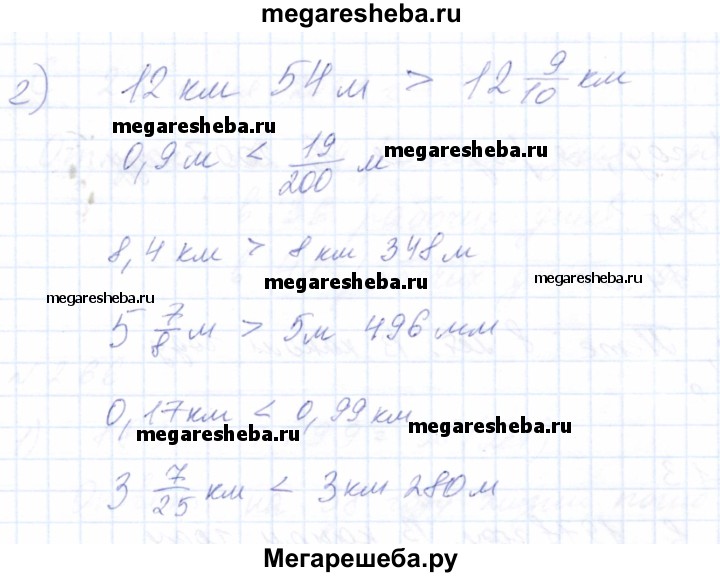 megaresheba.ru
г) 12 км 54 м > 12 9/10 км
megaresheba.ru
0,9 м < 19/200 м
megaresheba.ru
8,4 км > 8 км 348 м
megaresheba.ru
megaresheba.ru
5 7/8 м > 5 м 496 мм
0,17 км < 0,99 км
megaresheba.ru
megaresheba.ru
3 7/25 км < 3 км 280 м
Мегарешеба.ру